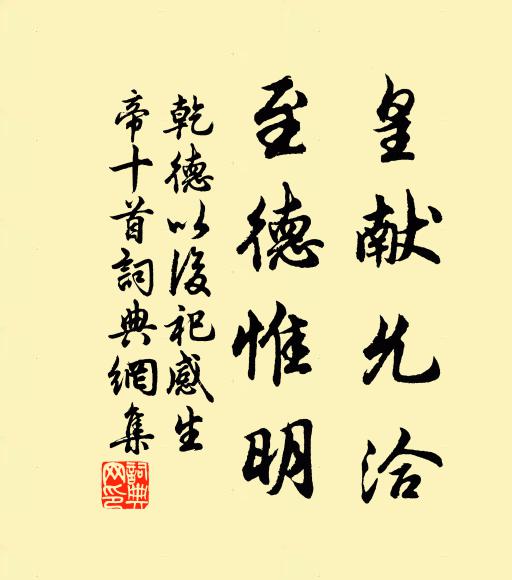 皇献允洽
至德惟明
乾德以後祀感生
帝十首詞典網集
詞典网印